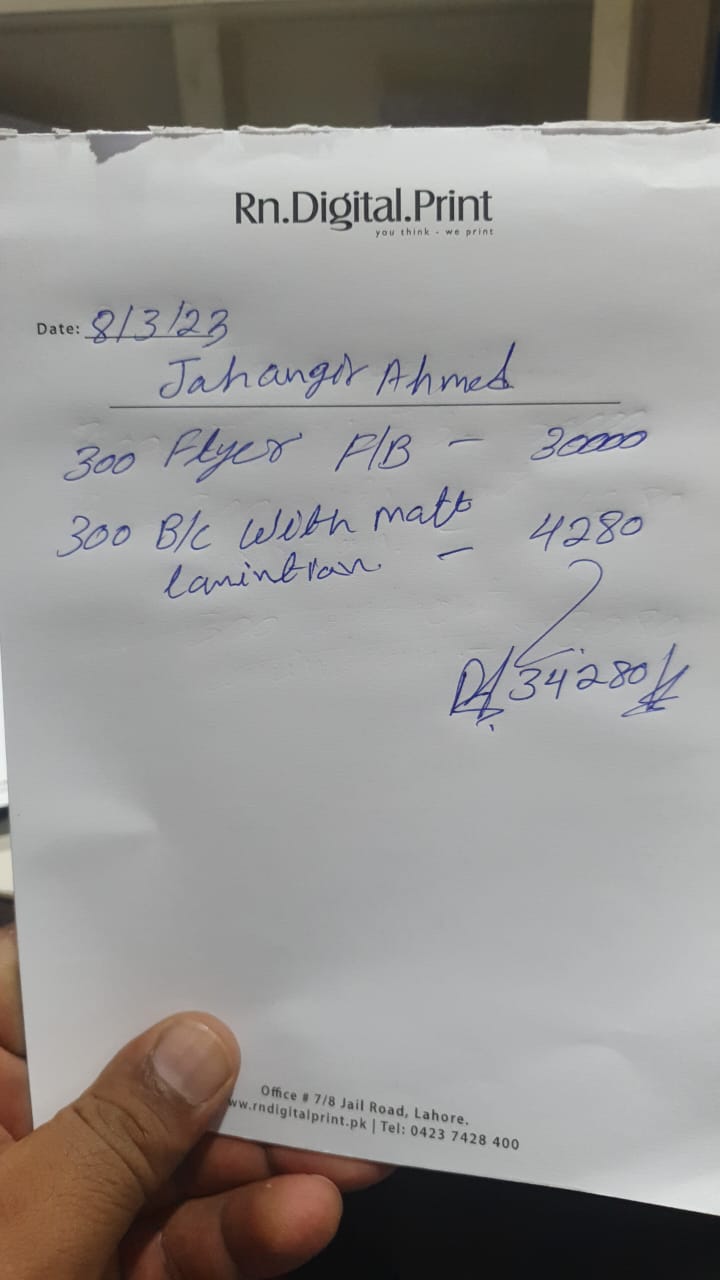 Rn.Digital.Print
you think - we print
Date: 8/3/23
Jahangir Ahmed
300 Flyer F/B - 30000
300 B/c With matt
lamintian - 4280
34280
Office # 7/8 Jail Road, Lahore.
ww.rndigitalprint.pk | Tel: 0423 7428 400